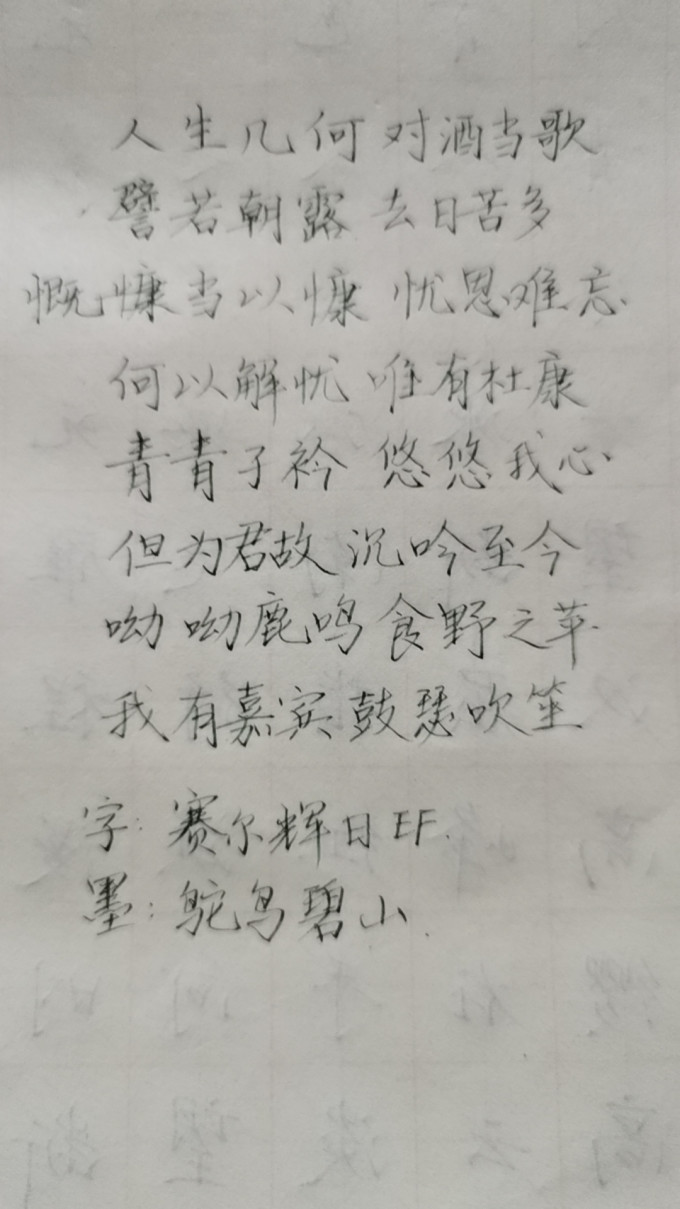 人生几何 对酒当歌
譬若朝露 去日苦多
慨慷当以慷 忧思难忘
何以解忧 唯有杜康
青青子衿 悠悠我心
但为君故 沉吟至今
呦呦鹿鸣 食野之苹
我有嘉宾 鼓瑟吹笙
字: 赛尔辉日EF.
墨: 鸵鸟碧山.